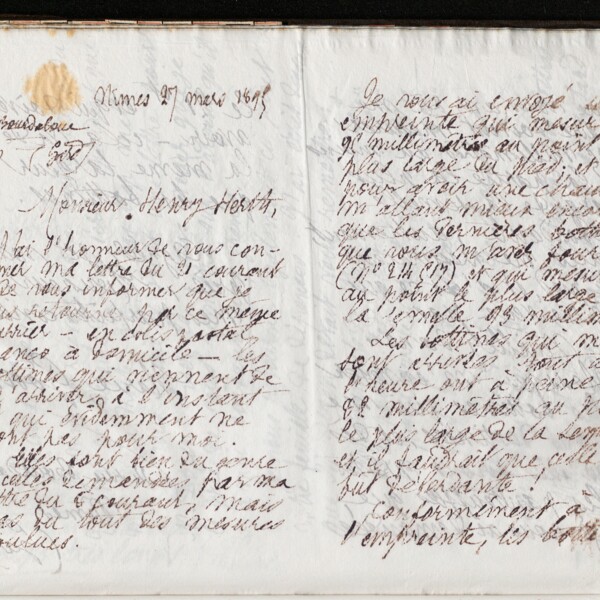 Nimes 27 mars 1895
Bourdaloue
Monsieur Henry Herth,
J'ai l'honneur de vous con-
mer ma lettre du 21 courant
de vous informer que je
us retourne par ce même
urrier – en colis postal
anco à domicile – les
ottines qui viennent de
arriver à l'instant
qui évidemment ne
ont pas pour moi.
Elles sont bien du genre
celles demandées par ma
ttre du 6 courant, mais
as du tout des mesures
oulues.
Je vous ai envoyé
empreinte qui mesur
98 millimètres au point
plus large du pied, et
pour avoir une chau
m'allant mieux encor
que les dernières
que vous m'avez four
(nº 24 817) et qui mesur
au point le plus large
la semelle 83 millim
Les bottines qui m
sont arrivées tout à
l'heure ont à peine
82 millimètres au p
le plus large de la sem
et il faudrait que celle
fut débordante
Conformément à
l'empreinte, les bott